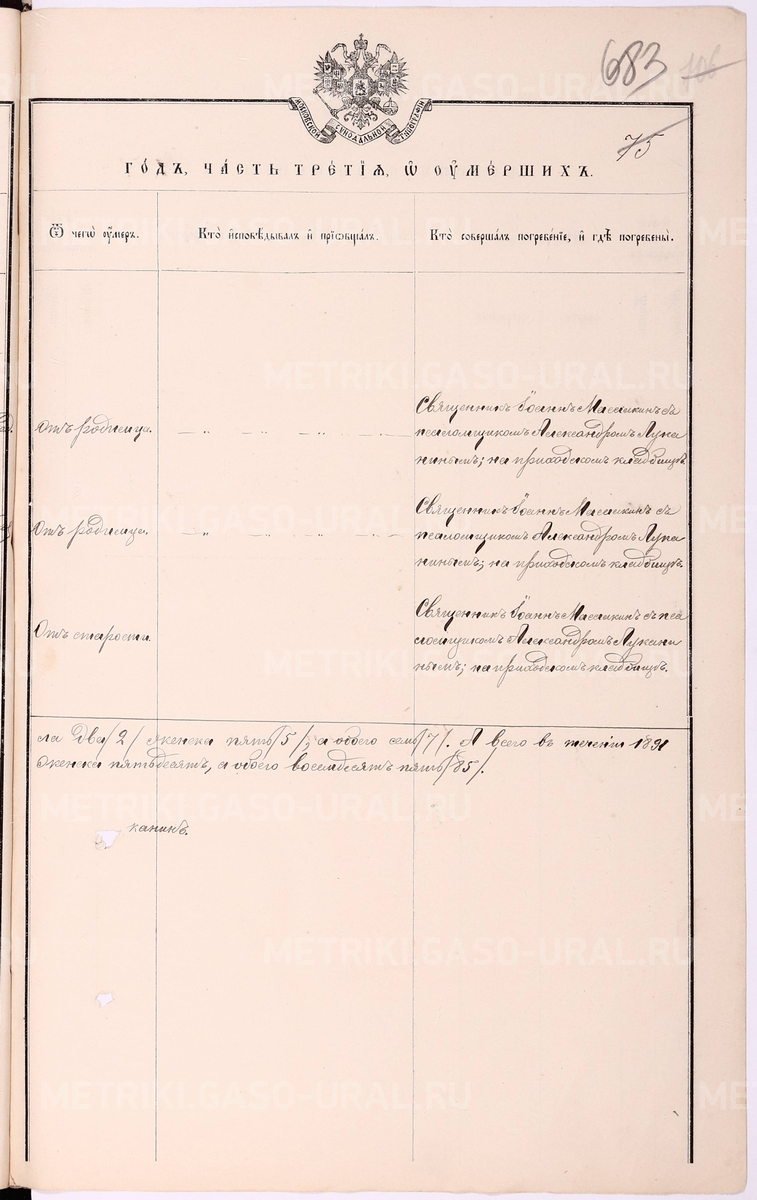 683 106
МОСКОВСКОЙ СѴНОДАЛЬНОЙ ТѴПОГРАФІИ
75
ГО́ДЪ, ЧА́СТЬ ТРЕ́ТІЯ, Ѽ ОУ҆МЕ́РШИХЪ.
Ѿ чегѡ̀ ѹ҆́меръ.
Кто̀ и҆сповѣ́дывалъ и҆ прїѡбща́лъ.
Кто̀ соверша́лъ погребе́нїе, и҆ гдѣ̀ погребены̀.
METRIKI.GASO-URAL.RU
Отъ родимца.
— „ — „ — „ —
Священникъ Іоаннъ Масалкинъ съ
псаломщикомъ Александромъ Лука
нинымъ; на приходскомъ кладбищѣ.
Отъ родимца.
— „ — „ — „ —
Священникъ Іоаннъ Масалкинъ съ
псаломщикомъ Александромъ Лука
нинымъ; на приходскомъ кладбищѣ.
Отъ старости.
Священникъ Іоаннъ Масалкинъ съ пса
ломщикомъ Александромъ Лукани
нымъ; на приходскомъ кладбищѣ.
ла два /2/ женска пять /5/, а обоего семь /7/. А всего въ теченіи 1891
женска пятьдесятъ, а обоего восемдесятъ пять /85/.
канинъ.